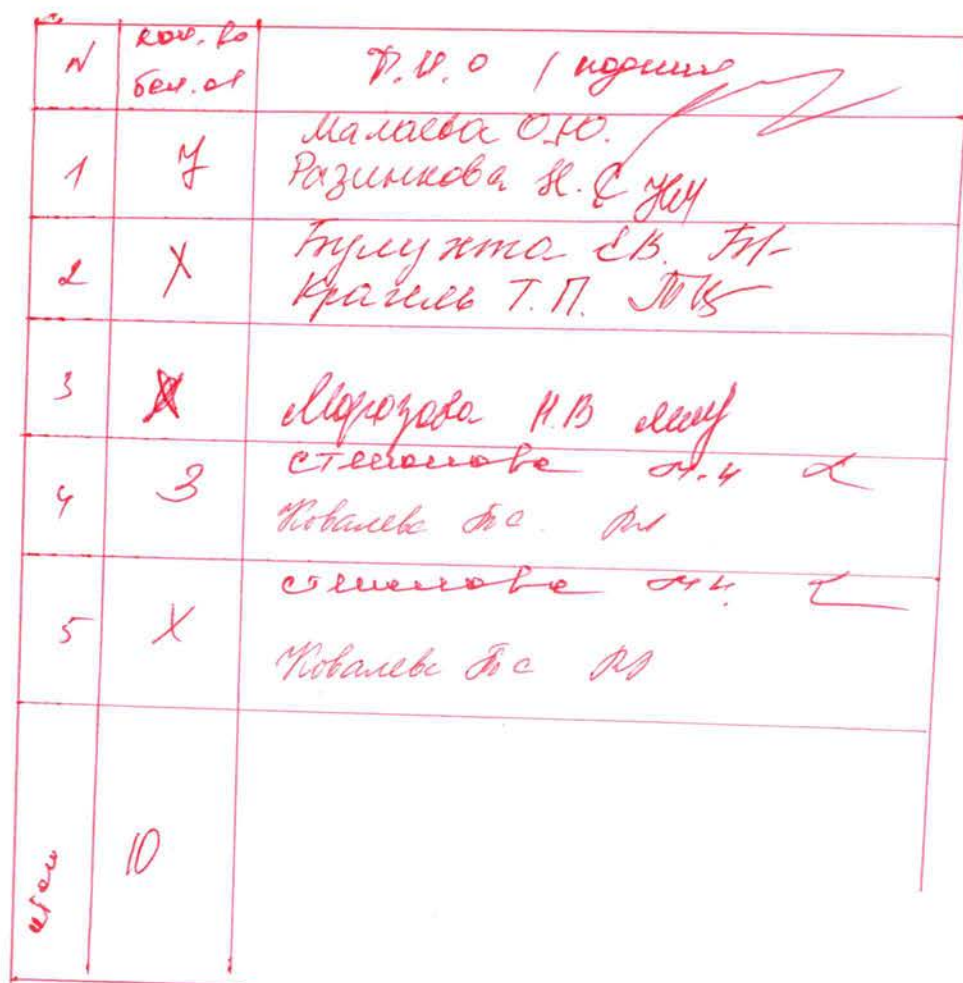 N кол. во Ф.И.О / подпись
бел. от
1 7 Малаева О.Ю.
Разинкова Н.С
2 X Булухта Е.В.
Крагель Т.П.
3 X Морозова Н.В
4 3 степанова н.и
Ковалева Т.С.
5 X степанова н.и.
Ковалева Т.С
итог 10